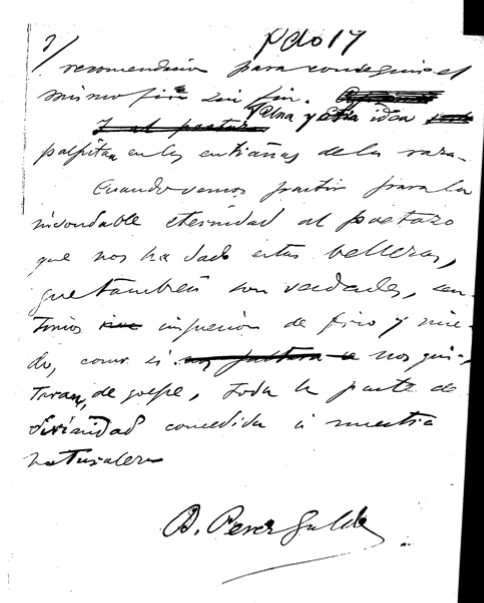 7/
recomendacion para conseguir el
mismo fin sin fin.
Alma y esta idea
palpitan en las entrañas de la raza.
Cuando vemos partir para la
insondable eternidad al poetazo
que nos ha dado estas bellezas,
que también son verdades, sen-
timos impresion de frio y mie-
do, como si nos qui-
taran, de golpe, toda la parte de
divinidad concedida á nuestra
naturaleza
B. Perez Galdos